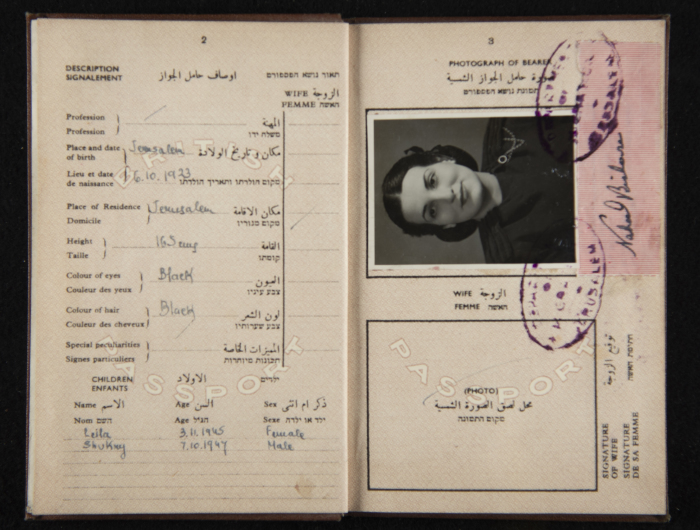 2
DESCRIPTION
SIGNALEMENT
اوصاف حامل الجواز
תאור נושא הפספורט
WIFE الزوجة
FEMME האשה
Profession
Profession
المهنة
משלח ידו
Place and date
of birth
Jerusalem
مكان وتاريخ الولادة
Lieu et date
de naissance
6.10.1923
מקום הולדתו ותאריך הולדתו
Place of Residence
Domicile
Jerusalem
مكان الاقامة
מקום מגוריו
Height
Taille
165 cms
القامة
קומתו
Colour of eyes
Couleur des yeux
Black
العيون
צבע עיניו
Colour of hair
Couleur des cheveux
Black
لون الشعر
צבע שערותיו
Special peculiarities
Signes particuliers
المميزات الخاصة
תכונות מיוחדות
BRITISH
PASSPORT
CHILDREN الاولاد ילדים
ENFANTS
Name الاسم Age السن Sex ذكر ام انثى
Nom השם Age הגיל Sexe ילד או ילדה
Leila 3.11.1945 Female
Shukry 7.10.1947 Male
3
PHOTOGRAPH OF BEARER
صورة حامل الجواز الشمسية
תמונת נושא הפספורט
JERUSALEM
WIFE الزوجة
FEMME האשה
JERUSALEM
PASSPORT
(PHOTO)
محل لصق الصورة الشمسية
מקום התמונה
توقيع الزوجة
חתימת האשה
SIGNATURE
OF WIFE
SIGNATURE
DE SA FEMME